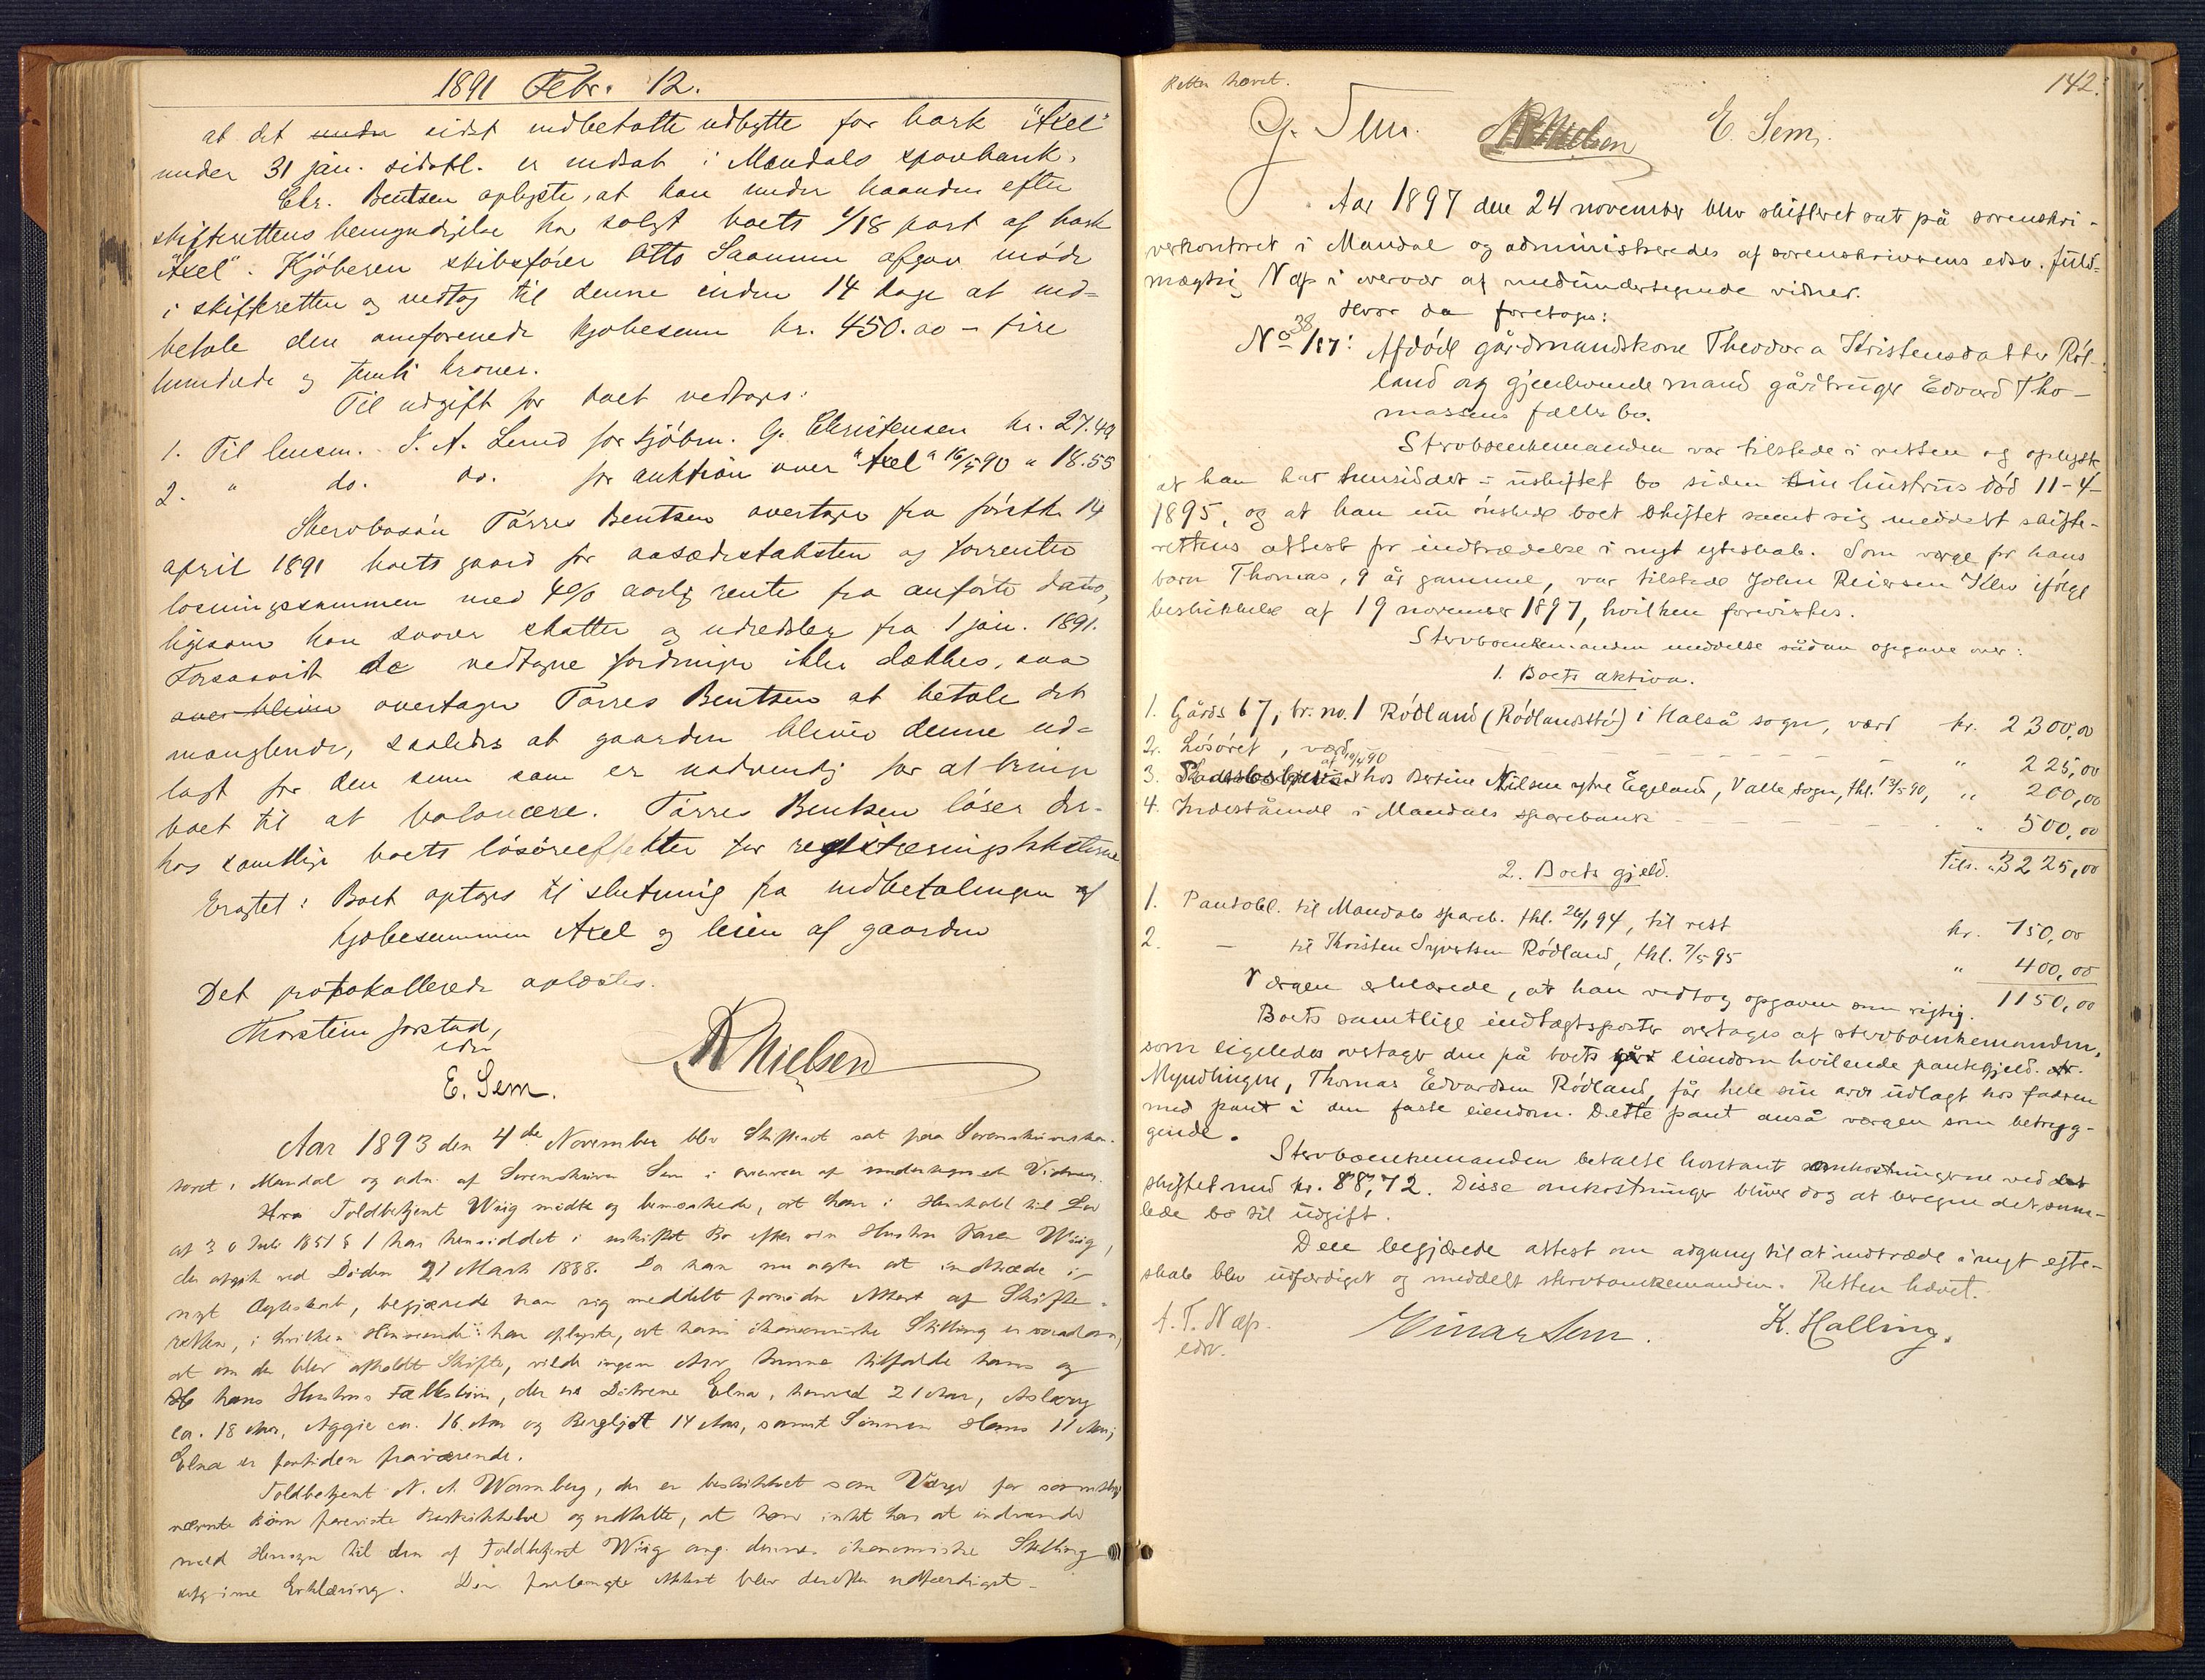 1891 Febr. 12.
at det sidst indbetalte udbytte for bark "Axel"
under 31 jan. sidstl. er indsat i Mandals sparebank.
Chr. Bentsen oplyste, at han under haanden efter
skifterettens bemyndigelse har solgt boets 1/18 part af bark
"Axel". Kjøberen skibsfører Otto Saanum afgav møde
i skifteretten og vedtog til denne inden 14 dage at ind-
betale den omforenede kjøbesum kr. 450.00 – fire
hundrede og femti kroner.
Til udgift for boet vedtoges:
1. Til lensm. I. A. Lund for kjøbm. G. Christensen kr. 27.49
2. " do. do. for auktion over "Axel" 16/5 90 " 18.55
Stervbosøn Tørres Bentsen overtager fra førstk. 14
april 1891 boets gaard for aasædestaksten og forrenter
løsningssummen med 4% aarlig rente fra anførte dato,
ligesom han svarer skatter og udredsler fra 1 jan. 1891.
Forsaavidt de vedtagne fordringer ikke dækkes, saa
overtager Tørres Bentsen at betale det
manglende, saaledes at gaarden bliver denne ud-
lagt for den sum som er nødvendig for at bringe
boet til at balancere. Tørres Bentsen løser der-
hos samtlige boets løsøreeffekter for registreringstaksterne
Eragtet: Boet optages til slutning fra indbetalingen af
kjøbesummen Axel og leien af gaarden
Det protokollerede oplæstes.
Thorstein Jorstad,
edsv.
A Nielsen
E. Sem.
Aar 1893 den 4de November blev Skifteret sat paa Sorenskriverkon-
toret i Mandal og adm. af Sorenskriver Sem i overvær af undertegnede Vidner.
Hvor Toldbetjent Wiig mødte og bemærkede, at han i Henhold til Lov
af 30 Juli 1851 § 1 har hensiddet i uskiftet Bo efter sin Hustru Karen Wiig,
der afgik ved Døden 21 Marts 1888. Da han nu agter at indtræde i
nyt Ægteskab, begjærede han sig meddelt fornøden Attest af Skifte-
retten, i hvilken Henseende han oplyste, at hans økonomiske Stilling er saadan,
at om der blev afholdt Skifte, vilde ingen Arv kunne tilfalde hans og
hans Hustrus Fællesbørn, der er Døtrene Elna, henved 21 Aar, Aslaug
ca. 18 Aar, Aggie ca. 16 Aar og Bergljot 14 Aar, samt Sønnen Hans 11 Aar;
Elna er fortiden fraværende.
Toldbetjent N. A. Warnberg, der er beskikket som Værge for samtlige
nævnte Børn foreviste Beskikkelse og udtalte, at han intet har at indvende
med Hensyn til den af Toldbetjent Wiig ang. dennes økonomiske Stilling
afgivne Erklæring. Den forlangte Attest blev derefter udfærdiget.
Retten hævet.
142.
G. Sem. A Nielsen E. Sem.
Aar 1897 den 24 november blev skifteret sat på sorenskri-
verkontoret i Mandal og administreredes af sorenskriverens edsv. fuld-
mægtig Næs i overvær af medundertegnede vidner.
Hvor da foretoges:
No 38/97: Afdøde gårdmandskone Theodora Kristensdatter Rød-
land og gjenlevende mand gårdbruger Edvard Tho-
massens fællesbo.
Stervboenkemanden var tilstede i retten og oplyste
at han har hensiddet i uskiftet bo siden hustrus død 11-4-
1895, og at han nu ønskede boet skiftet samt sig meddelt skifte-
rettens attest for indtrædelse i nyt egteskab. Som værge for hans
barn Thomas, 9 år gammel, var tilstede John Reiersen Klev ifølge
beskikkelse af 19 november 1897, hvilken forevistes.
Stervboenkemanden meddelte sådan opgave over:
1. Boets aktiva.
1. Gårds 67, br. no. 1 Rødland (Rødlandsstø) i Halså sogn, værd kr. 2300,00
2. Løsøret, værd " 225,00
3. af 19/4 90 hos Bertine Nilsen ytre Egeland, Valle sogn, thl. 13/5 90, " 200,00
4. Indestående i Mandals sparebank " 500,00
Tils. " 3225,00
2. Boets gjeld.
1. Pantobl. til Mandals spareb. thl. 26/1 94, til rest kr. 750,00
2. – til Thoisten Syvertsen Rødland, thl. 7/5 95 " 400,00
1150,00
Værgen erklærede, at han vedtog opgaven som rigtig.
Boets samtlige indtægtsposter overtages af stervboenkemanden,
som ligeledes overtager den på boets eiendom hvilende pantegjeld.
Myndlingen, Thomas Edvardsen Rødland, får hele sin arv udlagt hos faderen
med pant i den faste eiendom. Dette pant anså værgen som betryg-
gende.
Stervboenkemanden betalte kontant omkostningerne ved
skiftet med kr. 88,72. Disse omkostninger bliver dog at beregne det sam-
lede bo til udgift.
Den begjærede attest om adgang til at indtræde i nyt egte-
skab blev udfærdiget og meddelt stervboenkemanden. Retten hævet.
A. T. Næs.
edsv.
Einar Sem. K. Halling.